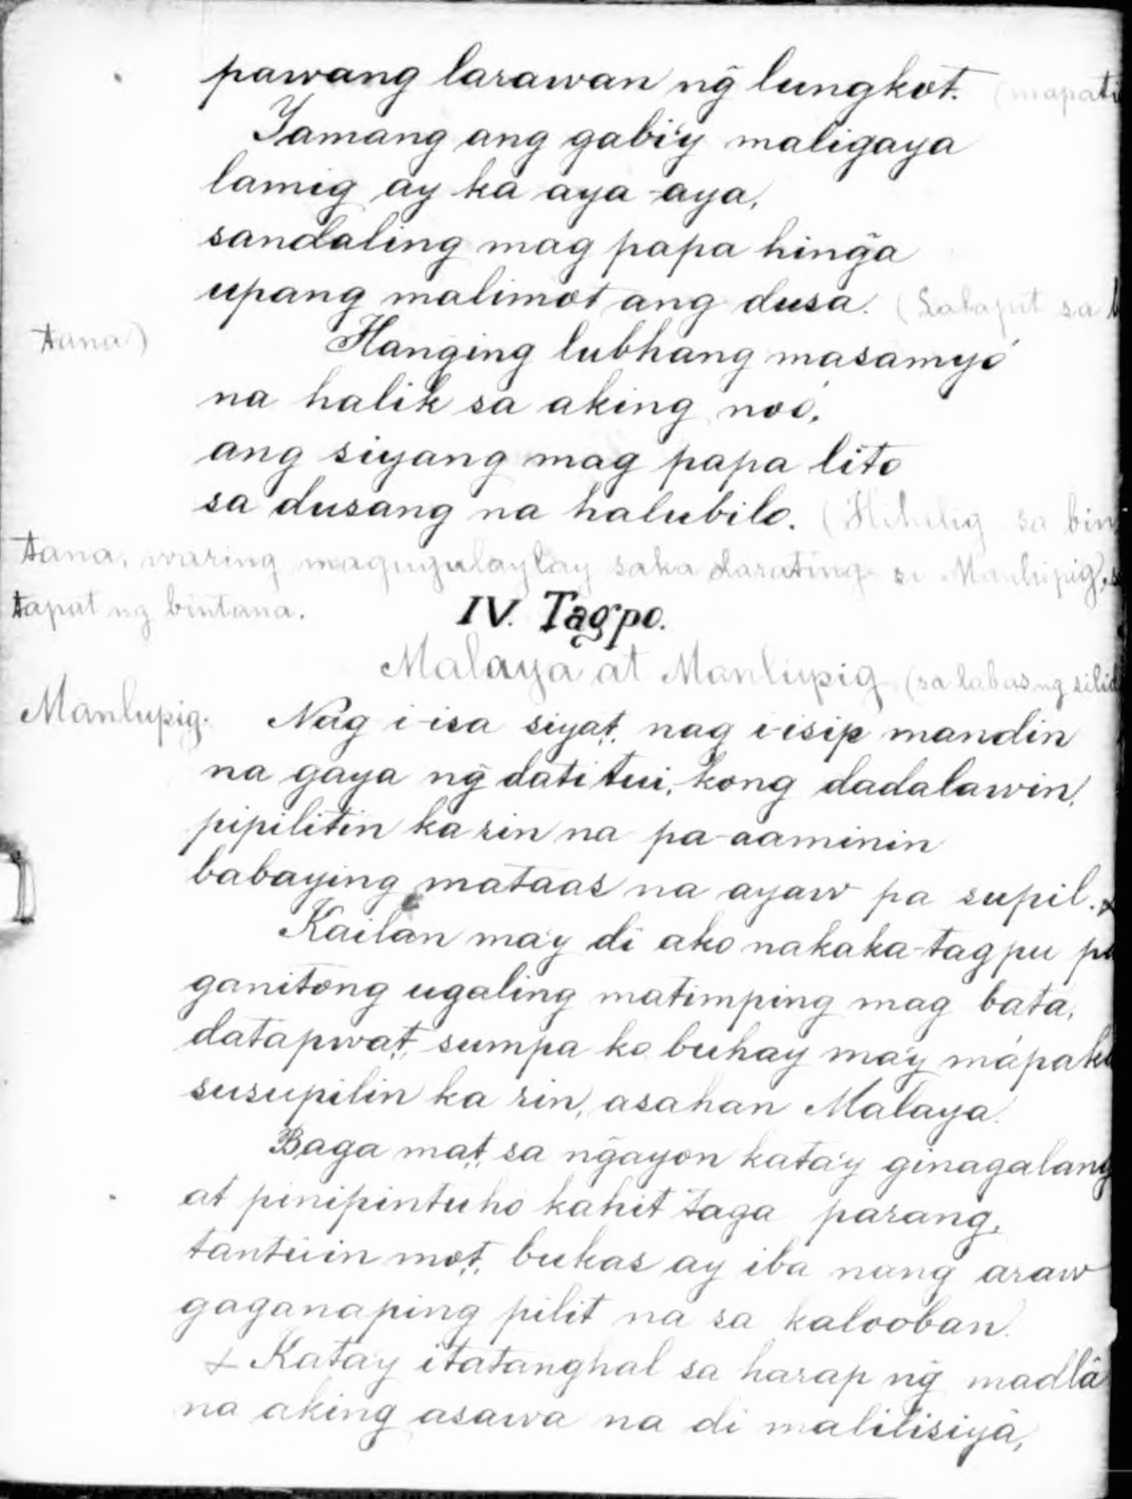 pawang larawan ng̃ lungkot. (mapati
Yamang ang gabi'y maligaya
lamig ay ka aya-aya,
sandaling mag papa hing̃a
upang malimot ang dusa. (Lalapit sa
tana)
Hang̃ing lubhang masamyó
na halik sa aking noó,
ang siyang mag papa lito
sa dusang na halubilo. (Hihilig sa bin
tana, waring magugulaylay saka darating si Manlupig, s
tapat ng bintana.
IV. Tagpo.
Malaya at Manlupig (sa labas ng silid
Manlupig. Nag i-isa siyat, nag i-isip mandin
na gaya ng̃ dati tui, kong dadalawin,
pipilitin ka rin na pa-aaminin
babaying mataas na ayaw pa supil.
Kailan ma'y di ako nakaka-tagpu pa
ganitong ugaling matimping mag bata,
datapwat, sumpa ko buhay ma'y mápaki
susupilin ka rin, asahan Malaya.
Baga mat, sa ng̃ayon kata'y ginagalang
at pinipintuho kahit taga parang,
tantuin mot, bukas ay iba nang araw
gaganaping pilit na sa kalooban.
Katay itatanghal sa harap ng̃ madlâ
na aking asawa na di malilisiyâ,